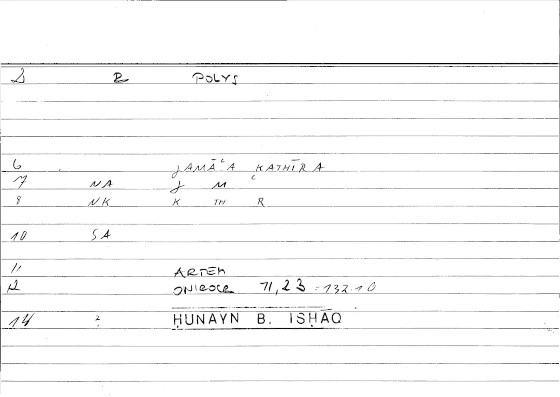 2 B POLYS
6 JAMĀʿA KATHĪRA
7 NA J M ʿ
8 NK K TH R
10 SA
11 ARTEM
12 ONIROCR 71,23 = 132.10
14 2 ḤUNAYN B. ISḤĀQ